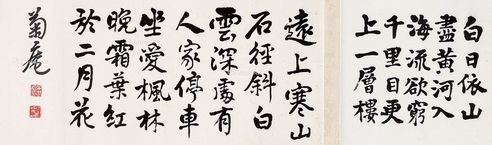 白日依山
盡黃河入
海流欲窮
千里目更
上一層樓
遠上寒山
石徑斜白
雲深處有
人家停車
坐愛楓林
晚霜葉紅
於二月花
菊庵